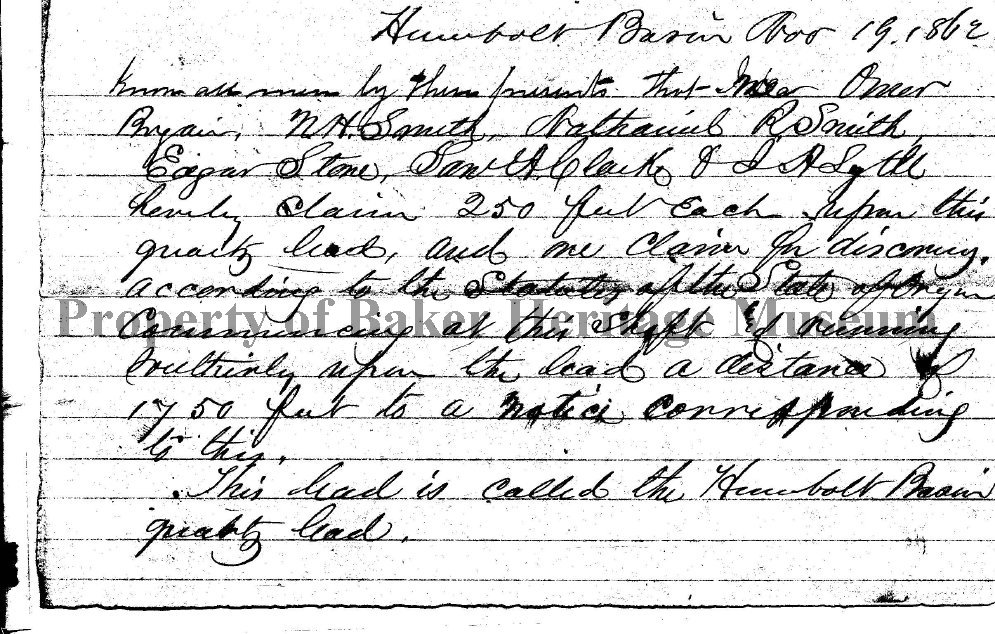 Humbolt Basin Nov 19, 1862
Know all men by these presents that Omer
Bryan, N.H. Smith, Nathaniel R Smith,
Edgar Stone, Saml A Clark & I A Lytle
hereby claim 250 feet each upon this
quartz lead, and one claim for discovery,
according to the Statutes of the State of Oregon
Property of Baker Heritage Museum
Commencing at this Shaft & running
Southerly upon the lead a distance of
1750 feet to a notice corresponding
to this.
This lead is called the Humbolt Basin
quartz lead.